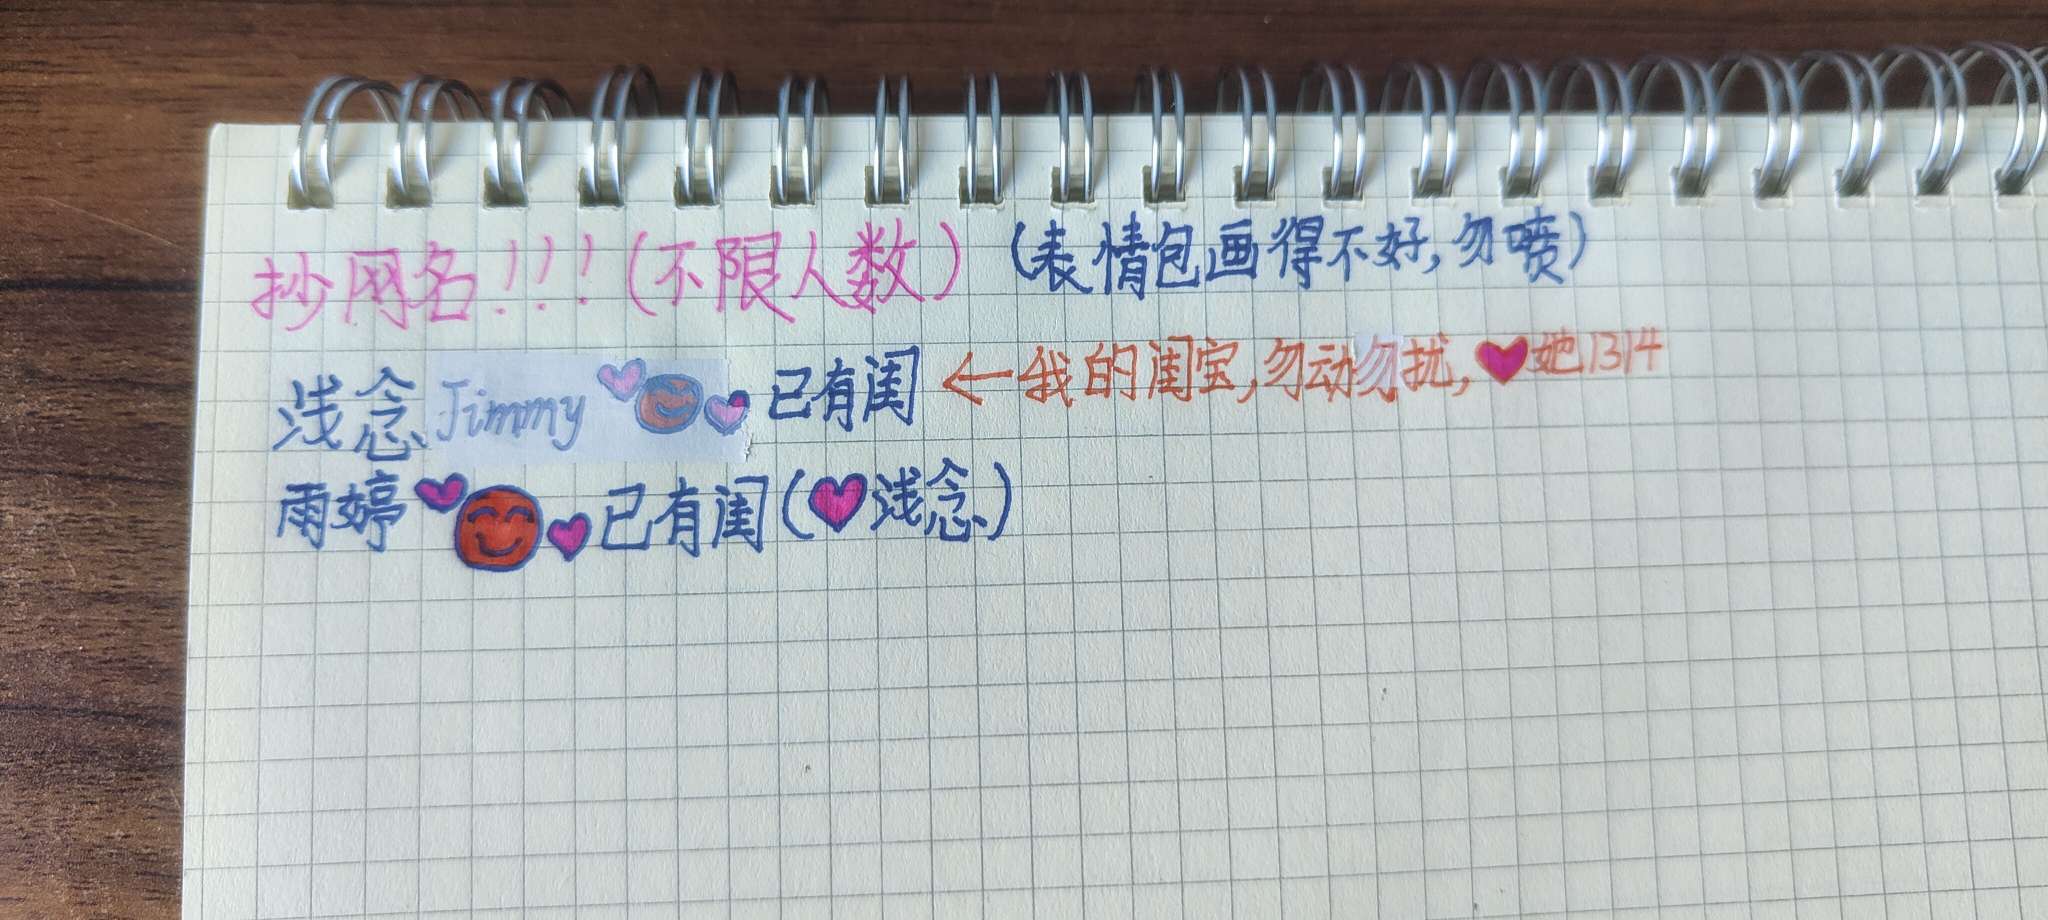 抄网名!!!(不限人数) (表情包画得不好,勿喷)
浅念Jimmy 已有闺←我的闺宝,勿动勿扰,她1314
雨婷 已有闺(浅念)